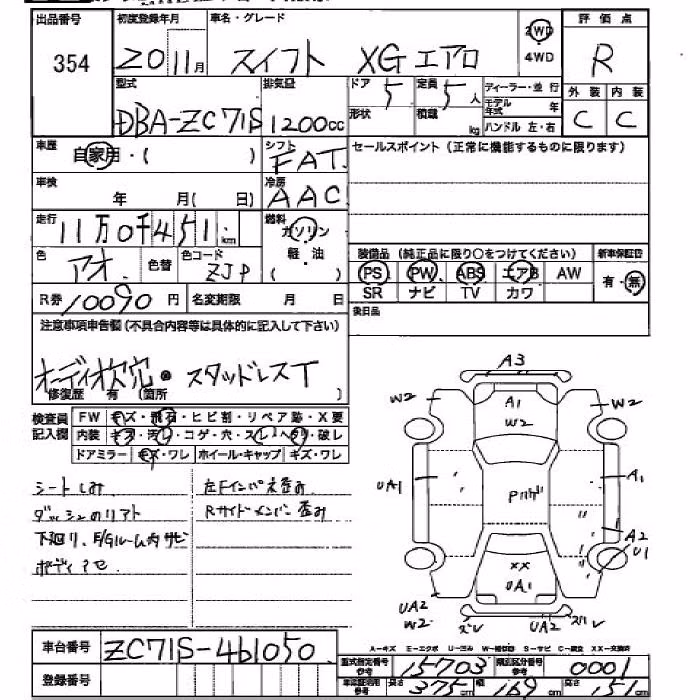 出品番号 初度登録年月 車名・グレード 2WD 4WD 評価点
354 20 11月 スイフト XGエアロ R
型式 排気量 ドア 5 定員 5人 ディーラー・並行 外装 内装
DBA-ZC71S 1200cc 形状 積載 kg モデル年式 年 ハンドル 左・右 C C
車歴 自家用・( ) シフト FAT セールスポイント(正常に機能するものに限ります)
車検 年 月( 日) 冷房 AAC
走行 11万0千451km 燃料 ガソリン 軽・油
色 アオ 色替 色コード ZJP
装備品(純正品に限り○をつけてください) 新車保証書
PS PW ABS エアB AW 有・無
SR ナビ TV カワ
R券 10090円 名変期限 月 日 後日品
注意事項申告欄(不具合内容等は具体的に記入して下さい)
オーディオ欠穴・スタッドレスT
修復歴 有(箇所 )
検査員記入欄 FW キズ・飛石・ヒビ割・リペア跡・X要
内装 キズ・汚レ・コゲ・穴・スレ・ヘタリ・破レ
ドアミラー キズ・ワレ ホイール・キャップ キズ・ワレ
シートしみ 左Fインパネ歪み
ダッシュのリアト Rサイドメンバー歪み
下廻り、E/Gルーム内サビ
A3
W2 A1 W2 W2
UA1 A1
A2
U1
XX
UA1
UA2 W2 ズレ UA2 ズレ
A-キズ E-エクボ U-凹み W-補修跡 S-サビ C-腐蝕 XX-交換済
車台番号 ZC71S-461050
登録番号
型式指定番号 参考 15703 類別区分番号 参考 0001
参考 長さ 375cm 幅 169cm 高さ 151cm